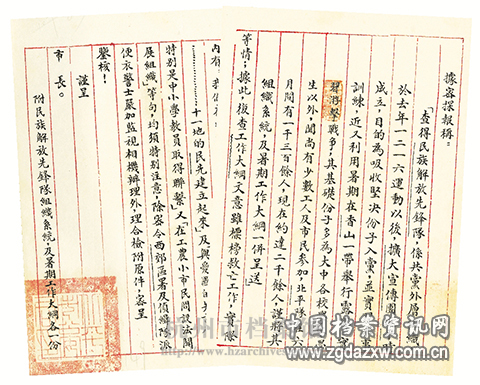 據密探報稱：
「查得民族解放先鋒隊，係共黨外層組織
於去年一二一六運動以後，擴大宣傳
成立，目的為吸收堅決份子入黨，並實
訓練，近又利用暑期在香山一帶舉行
游擊戰多，其基礎份子多為大中各校
生以外，聞尚有少數工人及市民參加，北平隊
月間有一千三百餘人，現在約達二千餘人，謹將其
組織系統，及暑期工作大綱一併呈送」
等情；據此，復查工作大綱文意雖標榜救亡工作，實際
內有
十一地的民先建立起來」及與
特別是中小學教員取得聯繫」又在工農小市民間設法開
展組織」等句，均須特別注意，除密令西郊區署及偵緝隊派
便衣警士嚴加監視相機辦理外，理合檢附原件，密呈
鑒核！
謹呈
市長。
附民族解放先鋒隊組織系統及暑期工作大綱各一份
杭州市档案
www.hzarchives
中国档案资讯网
www.zgdazxw.com